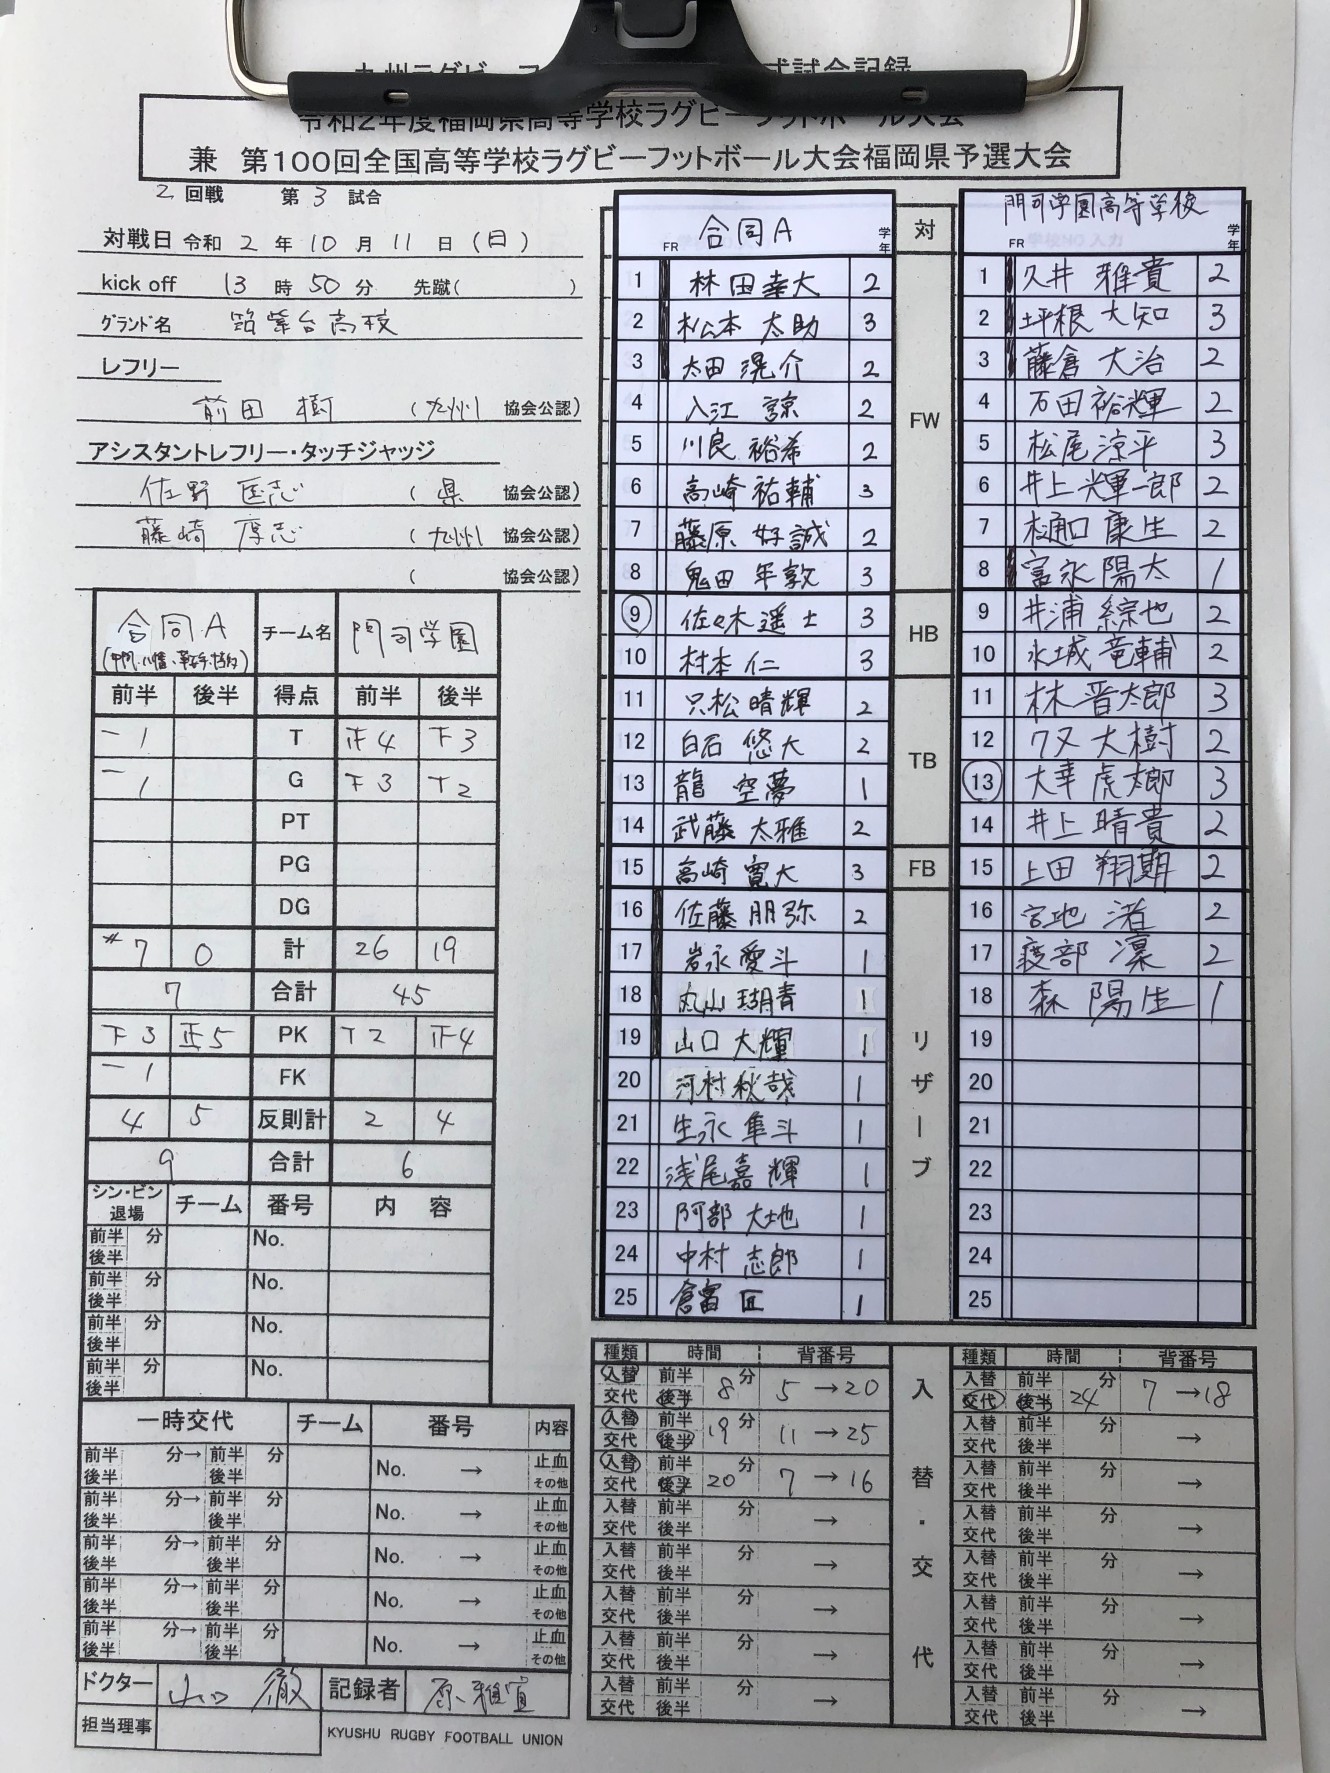 令和2年度福岡県高等学校ラグビーフットボール大会
兼 第100回全国高等学校ラグビーフットボール大会福岡県予選大会
2 回戦 第 3 試合
対戦日 令和 2 年 10 月 11 日 (日)
kick off 13 時 50 分 先蹴( )
グランド名 筑紫台高校
レフリー
前田 樹 (九州 協会公認)
アシスタントレフリー・タッチジャッジ
佐野 匡志 (県 協会公認)
藤崎 厚志 (九州 協会公認)
( 協会公認)
合同A チーム名 門司学園
前半 後半 得点 前半 後半
一 1 T 正4 下3
一 1 G 下3 T2
PT
PG
DG
7 0 計 26 19
7 合計 45
下3 正5 PK T2 正4
一 1 FK
4 5 反則計 2 4
9 合計 6
シン・ビン 退場 チーム 番号 内 容
前半 後半 分 No.
前半 後半 分 No.
前半 後半 分 No.
前半 後半 分 No.
一時交代 チーム 番号 内容
前半 後半 分→ 前半 後半 分 No. → 止血 その他
前半 後半 分→ 前半 後半 分 No. → 止血 その他
前半 後半 分→ 前半 後半 分 No. → 止血 その他
前半 後半 分→ 前半 後半 分 No. → 止血 その他
前半 後半 分→ 前半 後半 分 No. → 止血 その他
ドクター 山口 徹 記録者 原 雅宣
担当理事
KYUSHU RUGBY FOOTBALL UNION
合同A 対 門司学園高等学校
FR 学年 FR 学年
1 林田幸大 2 FW 1 久井 雅貴 2
2 松本 太助 3 2 坪根 大知 3
3 太田 滉介 2 3 藤倉 大治 2
4 入江 諒 2 4 石田 裕輝 2
5 川良 裕希 2 5 松尾 涼平 3
6 高崎 祐輔 3 6 井上 輝一郎 2
7 藤原 好誠 2 7 樋口 康生 2
8 鬼田 年敦 3 8 富永 陽太 1
9 佐々木 遥士 3 HB 9 井浦 綜也 2
10 村本 仁 3 10 水城 竜輔 2
11 只松 晴輝 2 TB 11 林 晋太郎 3
12 白石 悠大 2 12 大樹 2
13 龍 空夢 1 13 大幸 虎太郎 3
14 武藤 太雅 2 14 井上 晴貴 2
15 高崎 寛大 3 FB 15 上田 翔期 2
16 佐藤 朋弥 2 リザーブ 16 宮地 渚 2
17 岩永 愛斗 1 17 渡部 凜 2
18 丸山 瑚青 1 18 森 陽生 1
19 山口 大輝 1 19
20 河村 秋哉 1 20
21 生永 隼斗 1 21
22 浅尾 嘉輝 1 22
23 阿部 大地 1 23
24 中村 志郎 1 24
25 倉富 匠 1 25
種類 時間 背番号 入替・交代 種類 時間 背番号
入替 交代 前半 後半 8 分 5 → 20 入替 交代 前半 後半 24 分 7 → 18
入替 交代 前半 後半 19 分 11 → 25 入替 交代 前半 後半 分 →
入替 交代 前半 後半 20 分 7 → 16 入替 交代 前半 後半 分 →
入替 交代 前半 後半 分 → 入替 交代 前半 後半 分 →
入替 交代 前半 後半 分 → 入替 交代 前半 後半 分 →
入替 交代 前半 後半 分 → 入替 交代 前半 後半 分 →
入替 交代 前半 後半 分 → 入替 交代 前半 後半 分 →
入替 交代 前半 後半 分 → 入替 交代 前半 後半 分 →